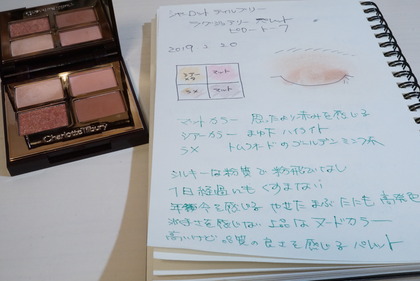 シャーロットティルブリー
ラグジュアリーパレット
ピロートーク
2019.2.20
シアー マット
ラメ マット
マットカラー 思ったより赤みを感じる
シアーカラー まゆ下ハイライト
ラメ トムフォードのゴールデンミンク系
シルキーな粉質で粉飛びなし
1日経過してもくすまない
年齢を感じる やせたまぶたにも高発色
派手さを感じない上品なヌードカラー
高いけど品質の良さを感じるパレット
Charlotte Tilbury